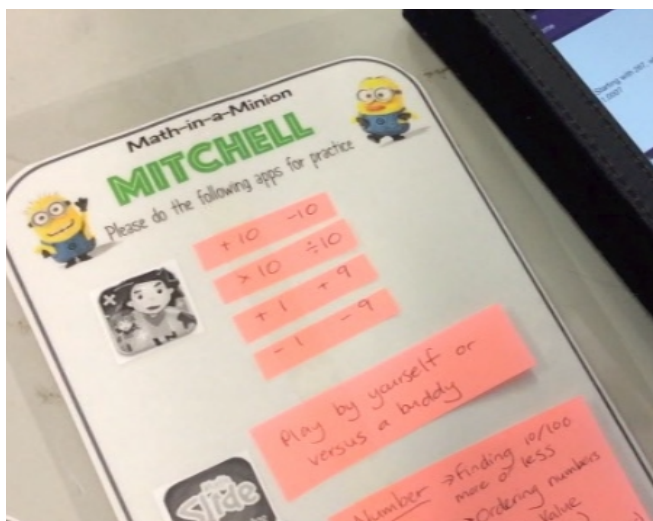 Math-in-a-Minion
MITCHELL
Please do the following apps for practice
+10 -10
×10 ÷10
+1 +9
-1 -9
Play by yourself or
versus a buddy
Slide
Number → Finding 10/100
more or less
→ Ordering numbers
Value
Starting with 267,
1,000?